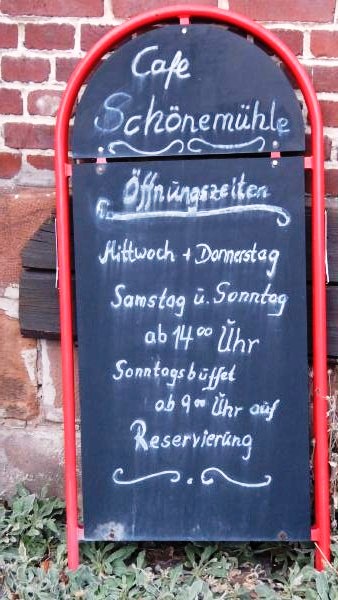 Cafe
Schönemühle
Öffnungszeiten
Mittwoch + Donnerstag
Samstag ü. Sonntag
ab 14⁰⁰ Ühr
Sonntagsbüffet
ab 9⁰⁰ Ühr auf
Reservierüng